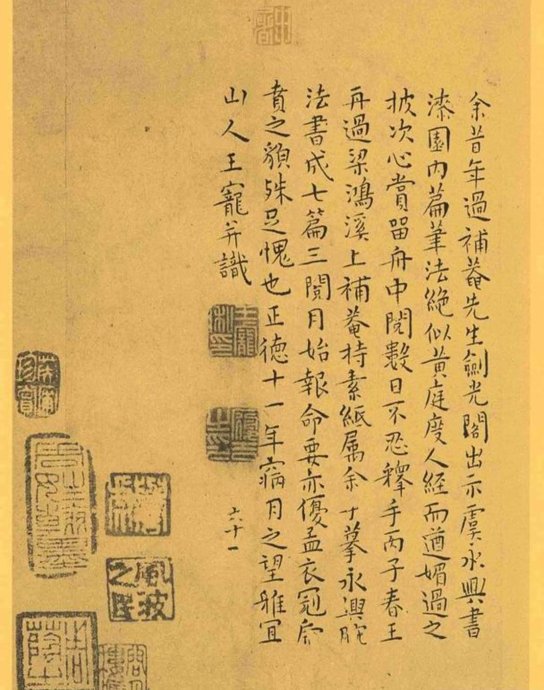 余昔年過補菴先生劍光閣出示虞永興書
漆園內篇筆法絕似黃庭度人經而遒媚過之
披次心賞留舟中閱數日不忍釋手丙子春王
再過梁鴻溪上補菴持素紙属余寸摹永興腕
法書成七篇三閱月始報命要亦優孟衣冠虎
賁之貌殊足愧也正德十一年病月之望雅宜
山人王寵并識
六十一
風波之民